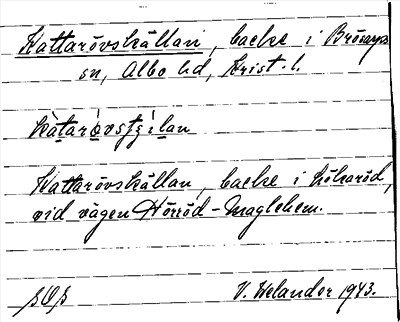 Kattarövskällan, backe i Brösarps
sn, Albo hd, Krist. l.
Kattarövskällan, backe i Hökaröd,
vid vägen Hörröd - Maglehem.
V. Welander 1943.